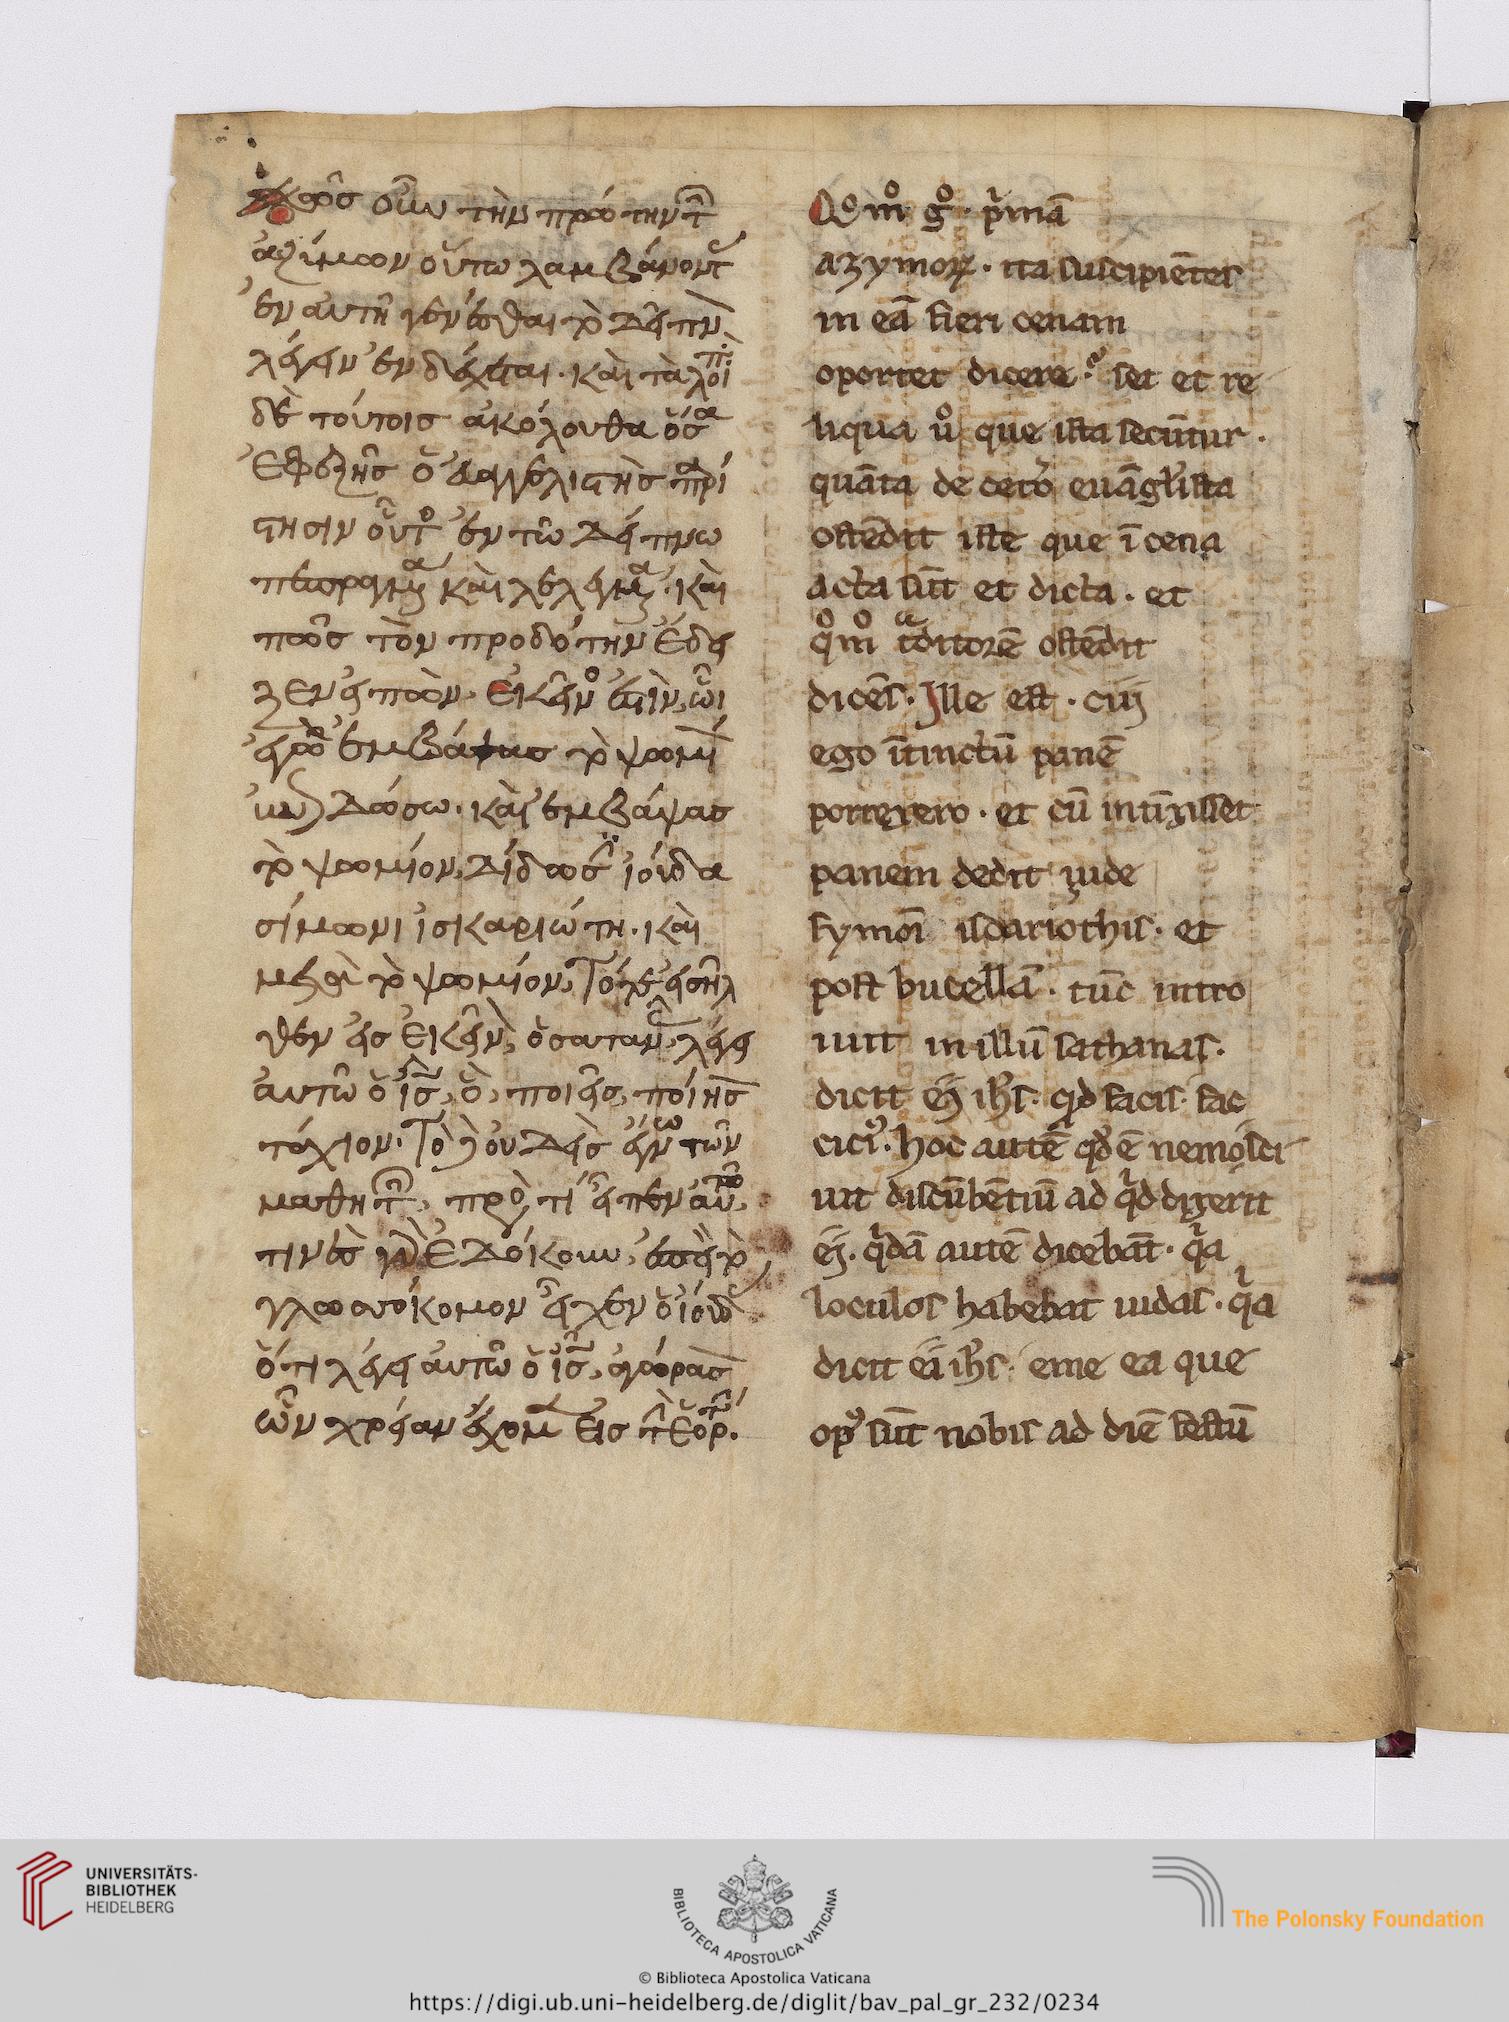 πῶς οὖν τὴν πρώτην τ
ἀζύμων οὕτω λαμβάνοντ
ἐν αυτῆ γενέσθαι τὸ δεῖπν
λέγειν ἐνδέχεται. καὶ τὰ λοιπ
δὲ τούτοις ακόλουθα ὅσα
ἐφεξῆς ὁ ευαγγελιστὴς παρί
στησιν οὗτο ἐν τῶ δείπνω
πεπραγμα καὶ λελεγμα. καὶ
πῶς τὸν προδότην ἔδει
ξεν ειπὼν. εκεῖνο ἐστὶν, ὧι
ἐγὼ ἐμβάψας τὸ ψωμί
δώσω. καὶ ἐμβάψας
τὸ ψωμίον, δίδωσ ἰούδα
σίμωνι ἰσκαριώτη. καὶ
μετὰ τὸ ψωμίον, τότε εἰσῆλ
θεν εἰς εκεῖν, ὁ σαταν. λέγει
αυτῶ ὁ ις, ὃ, ποιεῖς, ποίησ
τάχιον. τοῦτο δὲ ουδεὶς ἔγνω τῶν
μαθητ, πρὸ τί εἶπεν αυτῶ,
τινὲς γὰρ ἐδόκουν, ἐπεὶ τὸ
γλωσσόκομον εἶχεν ὁ ἰούδ
ὅτι λέγει αυτῶ ὁ ις, αγόρασ
ὧν χρείαν ἔχομ εἰς τ ἑορτ.
Qo mo go. pimā
azymoꝝ. ita suscipiētes
in eā fieri cenam
oportet dicere? set et re
liqua uo que ista secūtur.
quāta de ceto euāglista
ostēdit iste que ī cena
acta sūt et dicta. et
qo mo traditorē ostēdit
dicēs. Ille est. cui
ego ītinctū panē
porrexero. et cū intīxisset
panem dedit iude
symoī isdariothis. et
post bucellā. tūc intro
iuit in illū sathanas.
dicit ei ihs. qd facis. fac
citiꝰ. hoc autē qdē nemo sci
uit discūbētiū ad qid dixerit
ei. qidā autē dicebāt. qia
loculos habebat iudas. qia
dicit ei ihs. eme ea que
opꝰ sūt nobis ad diē festū
UNIVERSITÄTS-
BIBLIOTHEK
HEIDELBERG
BIBLIOTECA APOSTOLICA VATICANA
The Polonsky Foundation
© Biblioteca Apostolica Vaticana
https://digi.ub.uni-heidelberg.de/diglit/bav_pal_gr_232/0234